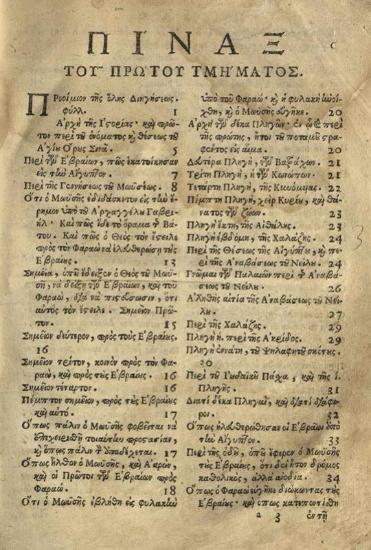 ΠΙΝΑΞ
ΤΟΥ ΠΡΩΤΟΥ ΤΜΗΜΑΤΟΣ.
ΠΡοοίμιον τῆς ὅλης Διηγήσεως.
φύλλ. 1
Ἀρχὴ τῆς Ἱστορίας· καὶ πρῶ-
τον περὶ τοῦ ὀνόματος καὶ θέσεως τοῦ
Ἁγίου Ὄρους Σινᾶ. 5
Περὶ τῶν Ἑβραίων, πῶς ἐκατοίκησαν
εἰς τὴν Αἴγυπτον. 7
Περὶ τῆς Γεννήσεως τοῦ Μωϋσέως. 8
Ὅτι ὁ Μωϋσῆς ἐδιδάσκετον εἰς τὴν ἔ-
ρημον ὑπὸ τοῦ Ἀρχαγγέλου Γαβρι-
ὴλ· Καὶ πῶς εἶδε τὸ ὅραμα τῆς Βά-
του. Καὶ πῶς ὁ Θεὸς τὸν ἔστειλε
πρὸς τὸν Φαραὼ νὰ ἐλευθερώσῃ τοὺς
Ἑβραίους. 13
Σημεῖα, ὁποῦ ἔδειξεν ὁ Θεὸς τοῦ Μωϋ-
σῆ, νὰ δείξῃ τῶν Ἑβραίων, καὶ τοῦ
Φαραὼ, διὰ νὰ πιστεύσωσιν, ὅτι
αὐτὸς τὸν ἔστειλε. Σημεῖον Πρῶ-
τον. 15
Σημεῖον δεύτερον, πρὸς τοὺς Ἑβραίους.
16
Σημεῖον τρίτον, κοινὸν πρὸς τὸν Φα-
ραὼ, καὶ πρὸς τοὺς Ἑβραίους. 16
Σημεῖον τέταρτον. 16
Πέμπτον σημεῖον, πρὸς τοὺς Ἑβραίους
καὶ αὐτό. 17
Ὅπως πάλιν ὁ Μωϋσῆς φοβεῖται νὰ
ἐπιχειρισθῇ τοιαύτην προστασίαν,
καὶ ὅπως πάλιν τὴν ὑποδέχεται. 17
Ὅπως ἦλθον ὁ Μωϋσῆς, καὶ Ἀαρὼν,
καὶ οἱ Πρῶτοι τῶν Ἑβραίων πρὸς
Φαραώ. 18
Ὅτι ὁ Μωϋσῆς ἐβλήθη εἰς φυλακὴν
ὑπὸ τοῦ Φαραώ· καὶ ἡ φυλακὴ ἀνοί-
χθη, καὶ ὁ Μωϋσῆς εὐγῆκε. 20
Ἀρχὴ τῶν δέκα Πληγῶν· ἐν ᾧ περὶ
τῆς πρώτης, ἤτοι τοῦ ποταμοῦ στρα-
φέντος εἰς αἷμα. 20
Δευτέρα Πληγὴ, τῶν Βατράχων. 21
Τρίτη Πληγὴ, ἡ τῶν Κωνώπων. 21
Τετάρτη Πληγὴ, τῆς Κυνομυίας. 22
Πέμπτη Πληγὴ, χεὶρ Κυρίου, καὶ θά-
νατος τῶν ζώων. 23
Πληγὴ ἕκτη, τῆς Αἰθάλης. 23
Πληγὴ ἑβδόμη, τῆς Χαλάζης. 24
Περὶ τῆς Θέσεως τῆς Αἰγύπτου, καὶ πε-
ρὶ τῆς Ἀναβάσεως τοῦ Νείλου. 24
Γνῶμαι τῶν Παλαιῶν περὶ τῆς Ἀναβά-
σεως τοῦ Νείλου. 26
Ἀληθὴς αἰτία τῆς Ἀναβάσεως τοῦ Νεί-
λου. 27
Περὶ τῆς Χαλάζης. 29
Πληγὴ η. περὶ τῆς Ἀκρίδος. 29
Πληγὴ ἐννάτη, τοῦ Ψηλαφητοῦ σκότους.
30
Περὶ τοῦ Ἰουδαϊκοῦ Πάσχα, καὶ τῆς ι.
Πληγῆς. 31
Διατί δέκα Πληγαὶ, καὶ διατί διάφο-
ροι. 32
Ὅπως ἐλευθερώθησαν οἱ Ἑβραῖοι ἀπὸ
τὴν Αἴγυπτον. 33
Περὶ τῆς ὁδοῦ, ὁποῦ ἔφερεν ὁ Μωϋσῆς
τοὺς Ἑβραίους, ὅτι δὲν ἦτον δρόμος
καθολικὸς, ἀλλὰ ἀνοδία. 34
Ὅπως ὁ Φαραὼ εὐγῆκε διώκωντας τοὺς
Ἑβραίους· καὶ ὅπως κατεποντίσθη
a 3 ἐν τῇ